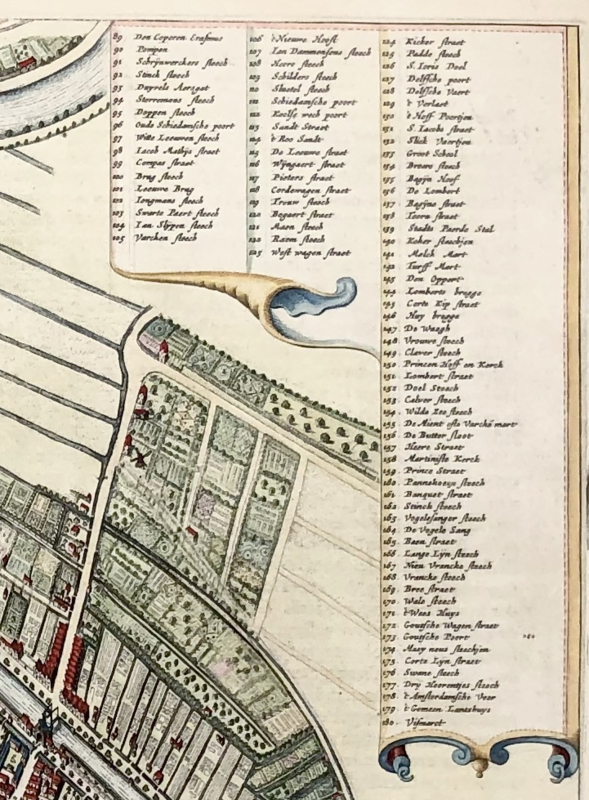 89 Den Coperen Erasmus
90 Pompen
91 Schrijnwerckers steech
92 Stinck steech
93 Duyvels Aersgat
94 Sterremans steech
95 Doppen steech
96 Oude Schiedamsche poort
97 Witte Leeuwen steech
98 Iacob Mathijs straet
99 Compas straet
100 Brug steech
101 Leeuwe Brug
102 Iongmans steech
103 Swarte Paert steech
104 Ian Slypen steech
105 Varcken steech
106 t'Nieuwe Hooft
107 Ian Dammensens steech
108 Heere steech
109 Schilders steech
110 Sleutel steech
111 Schiedamsche poort
112 poort
113 Sandt Straet
114 t'Roo Sandt
115 De Leeuwe straet
116 Wyngaert straet
117 Pieters straet
118 Cordewagen straet
119 Trouw steech
120 Bogaert straet
121 Maen steech
122 Raem steech
123 West wagen straet
124 Kicker straet
125 Padde steech
126 S. Ioris Doel
127 Delfsche poort
128 Delfsche Vaert
129 t' Verlaet
130 t' Hoff Poortjen
131 S. Iacobs straet
132 Slick Vaertjen
133 Groot School
134 steech
135 Bagijn Hoof
136 De Lombert
137 Bagijne straet
138 Toorn straet
139 Stadts Paerde Stal
140 steechjen
141 Melck Mart
142 Turff Mart
143 Den Oppert
144 Lomberts brugge
145 Corte Kip straet
146 Huy brugge
147 De Waegh
148 Vrouwe steech
149 Claver steech
150 Princen Hoff en Kerck
151 Lombert straet
152 Doel Steech
153 Calver steech
154 Wilde Zee steech
155 De Mient ofte Varckē mart
156 De Botter sloot
157 Heere Straet
158 Martiniste Kerck
159 Prince Straet
160 Pannekoeys steech
161 Banquet straet
162 Stinck steech
163 Vogelesanger steech
164 De Vogele Sang
165 Baen straet
166 Lange Lijn steech
167 Nieu Vrancke steech
168 Vrancke steech
169 Bree straet
170 Wale steech
171 t'Wees Huys
172 Goutsche Wagen straet
173 Goutsche Poort
174 steechjen
175 Corte Lijn straet
176 Swane steech
177 Drij Hoorentjes steech
178 t'Amsterdamsche Veer
179 t'Gemeen Lantshuys
180 Vismarct